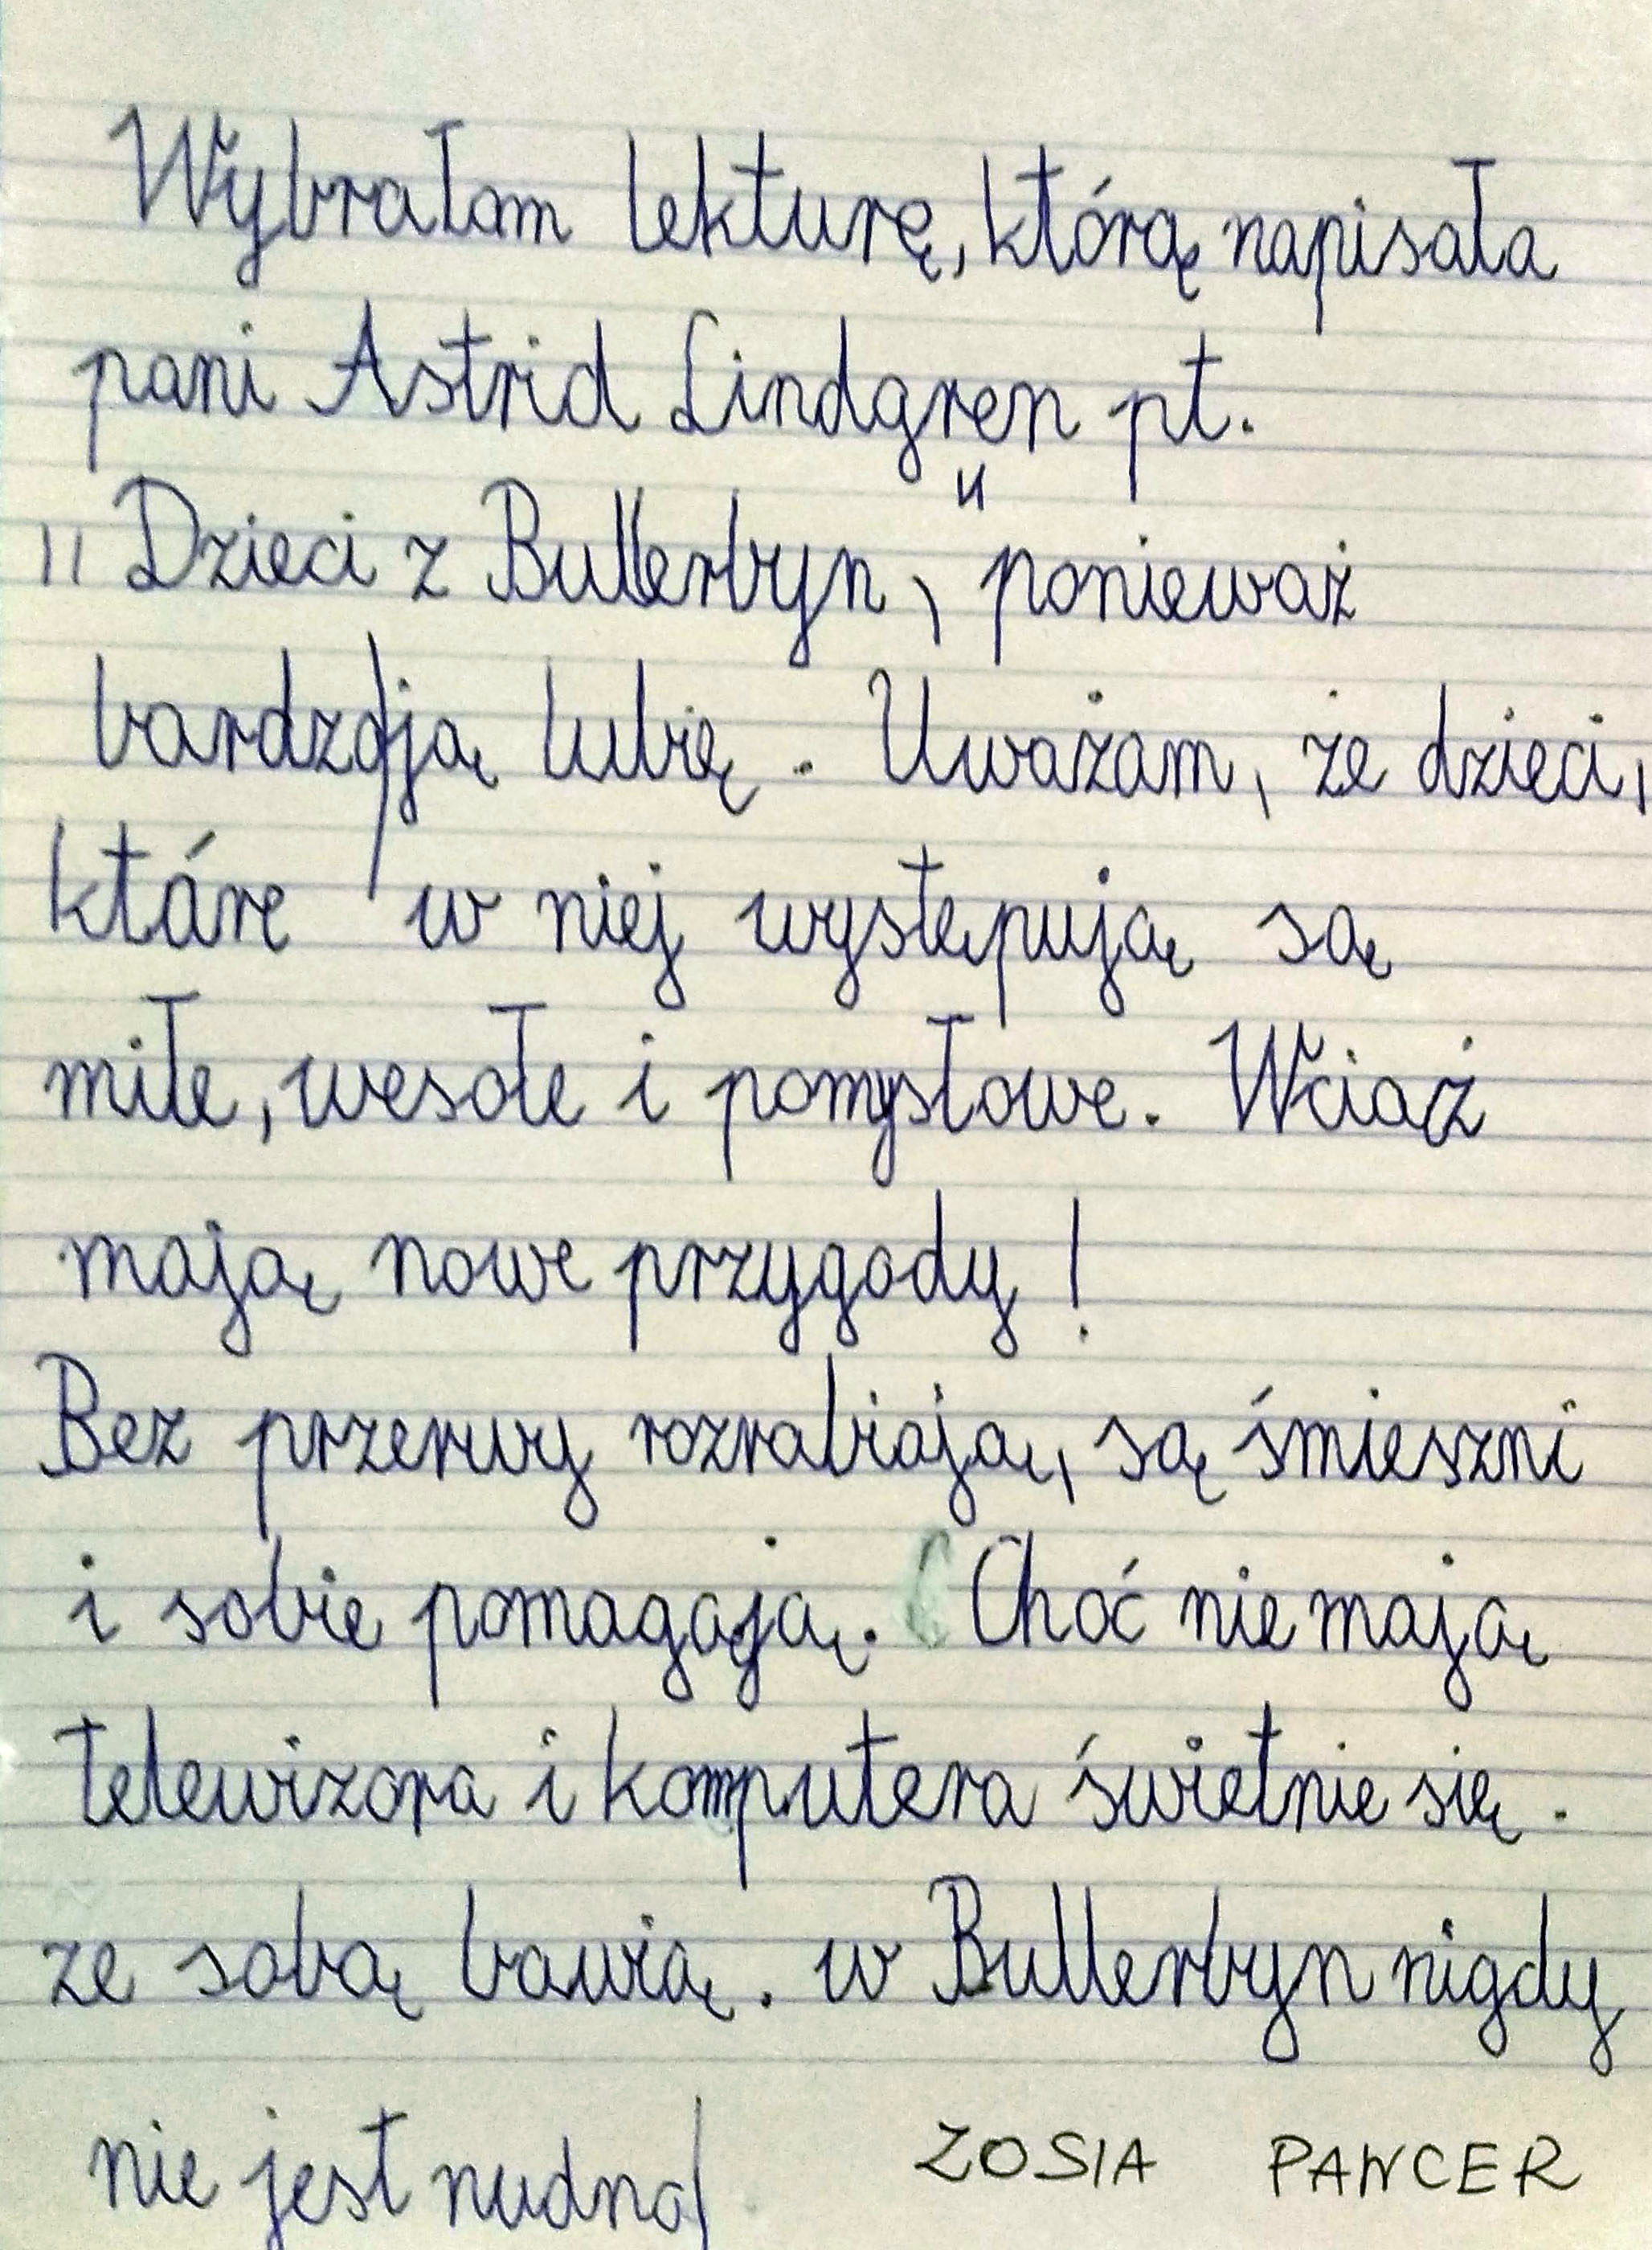 Wybrałam lekturę, którą napisała
pani Astrid Lindgren pt.
"Dzieci z Bullerbyn", ponieważ
bardzo ja lubię. Uważam, że dzieci,
które w niej występują są
miłe, wesołe i pomysłowe. Wciąż
mają nowe przygody!
Bez przerwy rozrabiają, są śmieszni
i sobie pomagają. Choć nie mają
telewizora i komputera świetnie się.
ze sobą bawią. w Bullerbyn nigdy
nie jest nudno!
ZOSIA PANCER